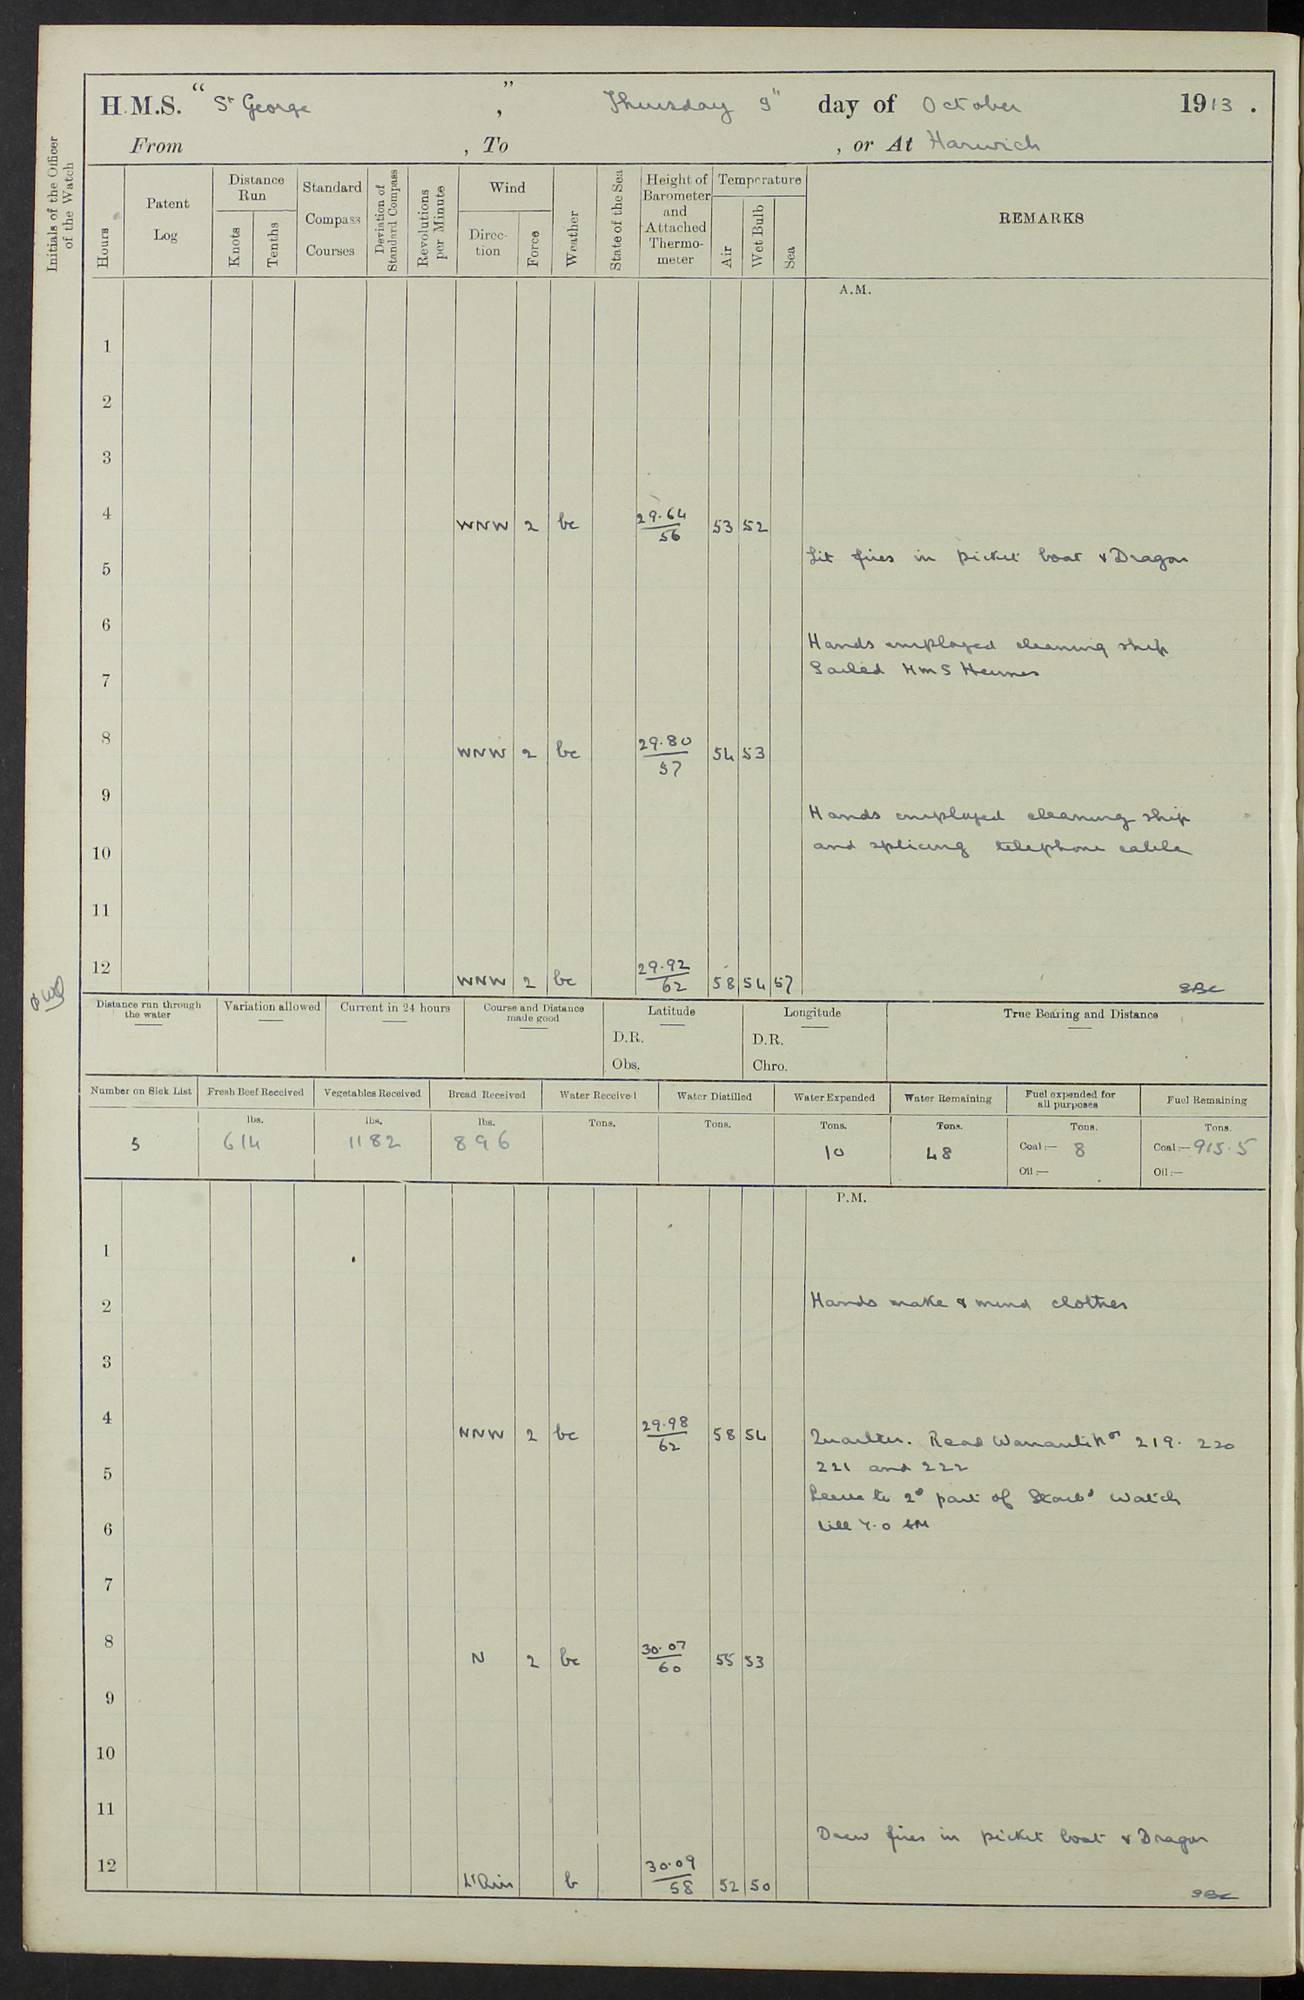 H.M.S. "St George", Thursday 9th day of October 1913.
From , To , or At Harwich
Initials of the Officer of the Watch
Hours
Patent Log
Distance Run
Knots
Tenths
Standard Compass Courses
Deviation of Standard Compass
Revolutions per Minute
Wind
Direction
Force
Weather
State of the Sea
Height of Barometer and Attached Thermometer
Temperature
Air
Wet Bulb
Sea
REMARKS
A.M.
1
2
3
4 WNW 2 bc 29.64/56 53 52
Lit fires in picket boat & Dragon
5
6
Hands employed cleaning ship
Sailed HMS Hermes
7
8 WNW 2 bc 29.80/57 54 53
9
Hands employed cleaning ship
and splicing telephone cable
10
11
12 WNW 2 bc 29.92/62 58 54 57
Distance run through the water
Variation allowed
Current in 24 hours
Course and Distance made good
Latitude
D.R.
Obs.
Longitude
D.R.
Chro.
True Bearing and Distance
Number on Sick List
Fresh Beef Received
Vegetables Received
Bread Received
Water Received
Water Distilled
Water Expended
Water Remaining
Fuel expended for all purposes
Fuel Remaining
lbs. lbs. lbs. Tons. Tons. Tons. Tons. Tons. Tons.
5 614 1182 896 10 48 Coal:— 8 Coal:— 915.5
Oil:— Oil:—
P.M.
1
2
Hands make & mend clothes
3
4 NNW 2 bc 29.98/62 58 54
Quarters. Read Warrants Nos 219. 220
221 and 222
5
Leave to 2d part of Starbd Watch
till 7.0 AM
6
7
8 N 2 bc 30.07/60 55 53
9
10
11
Drew fires in picket boat & Dragon
12 Lt Airs b 30.09/58 52 50